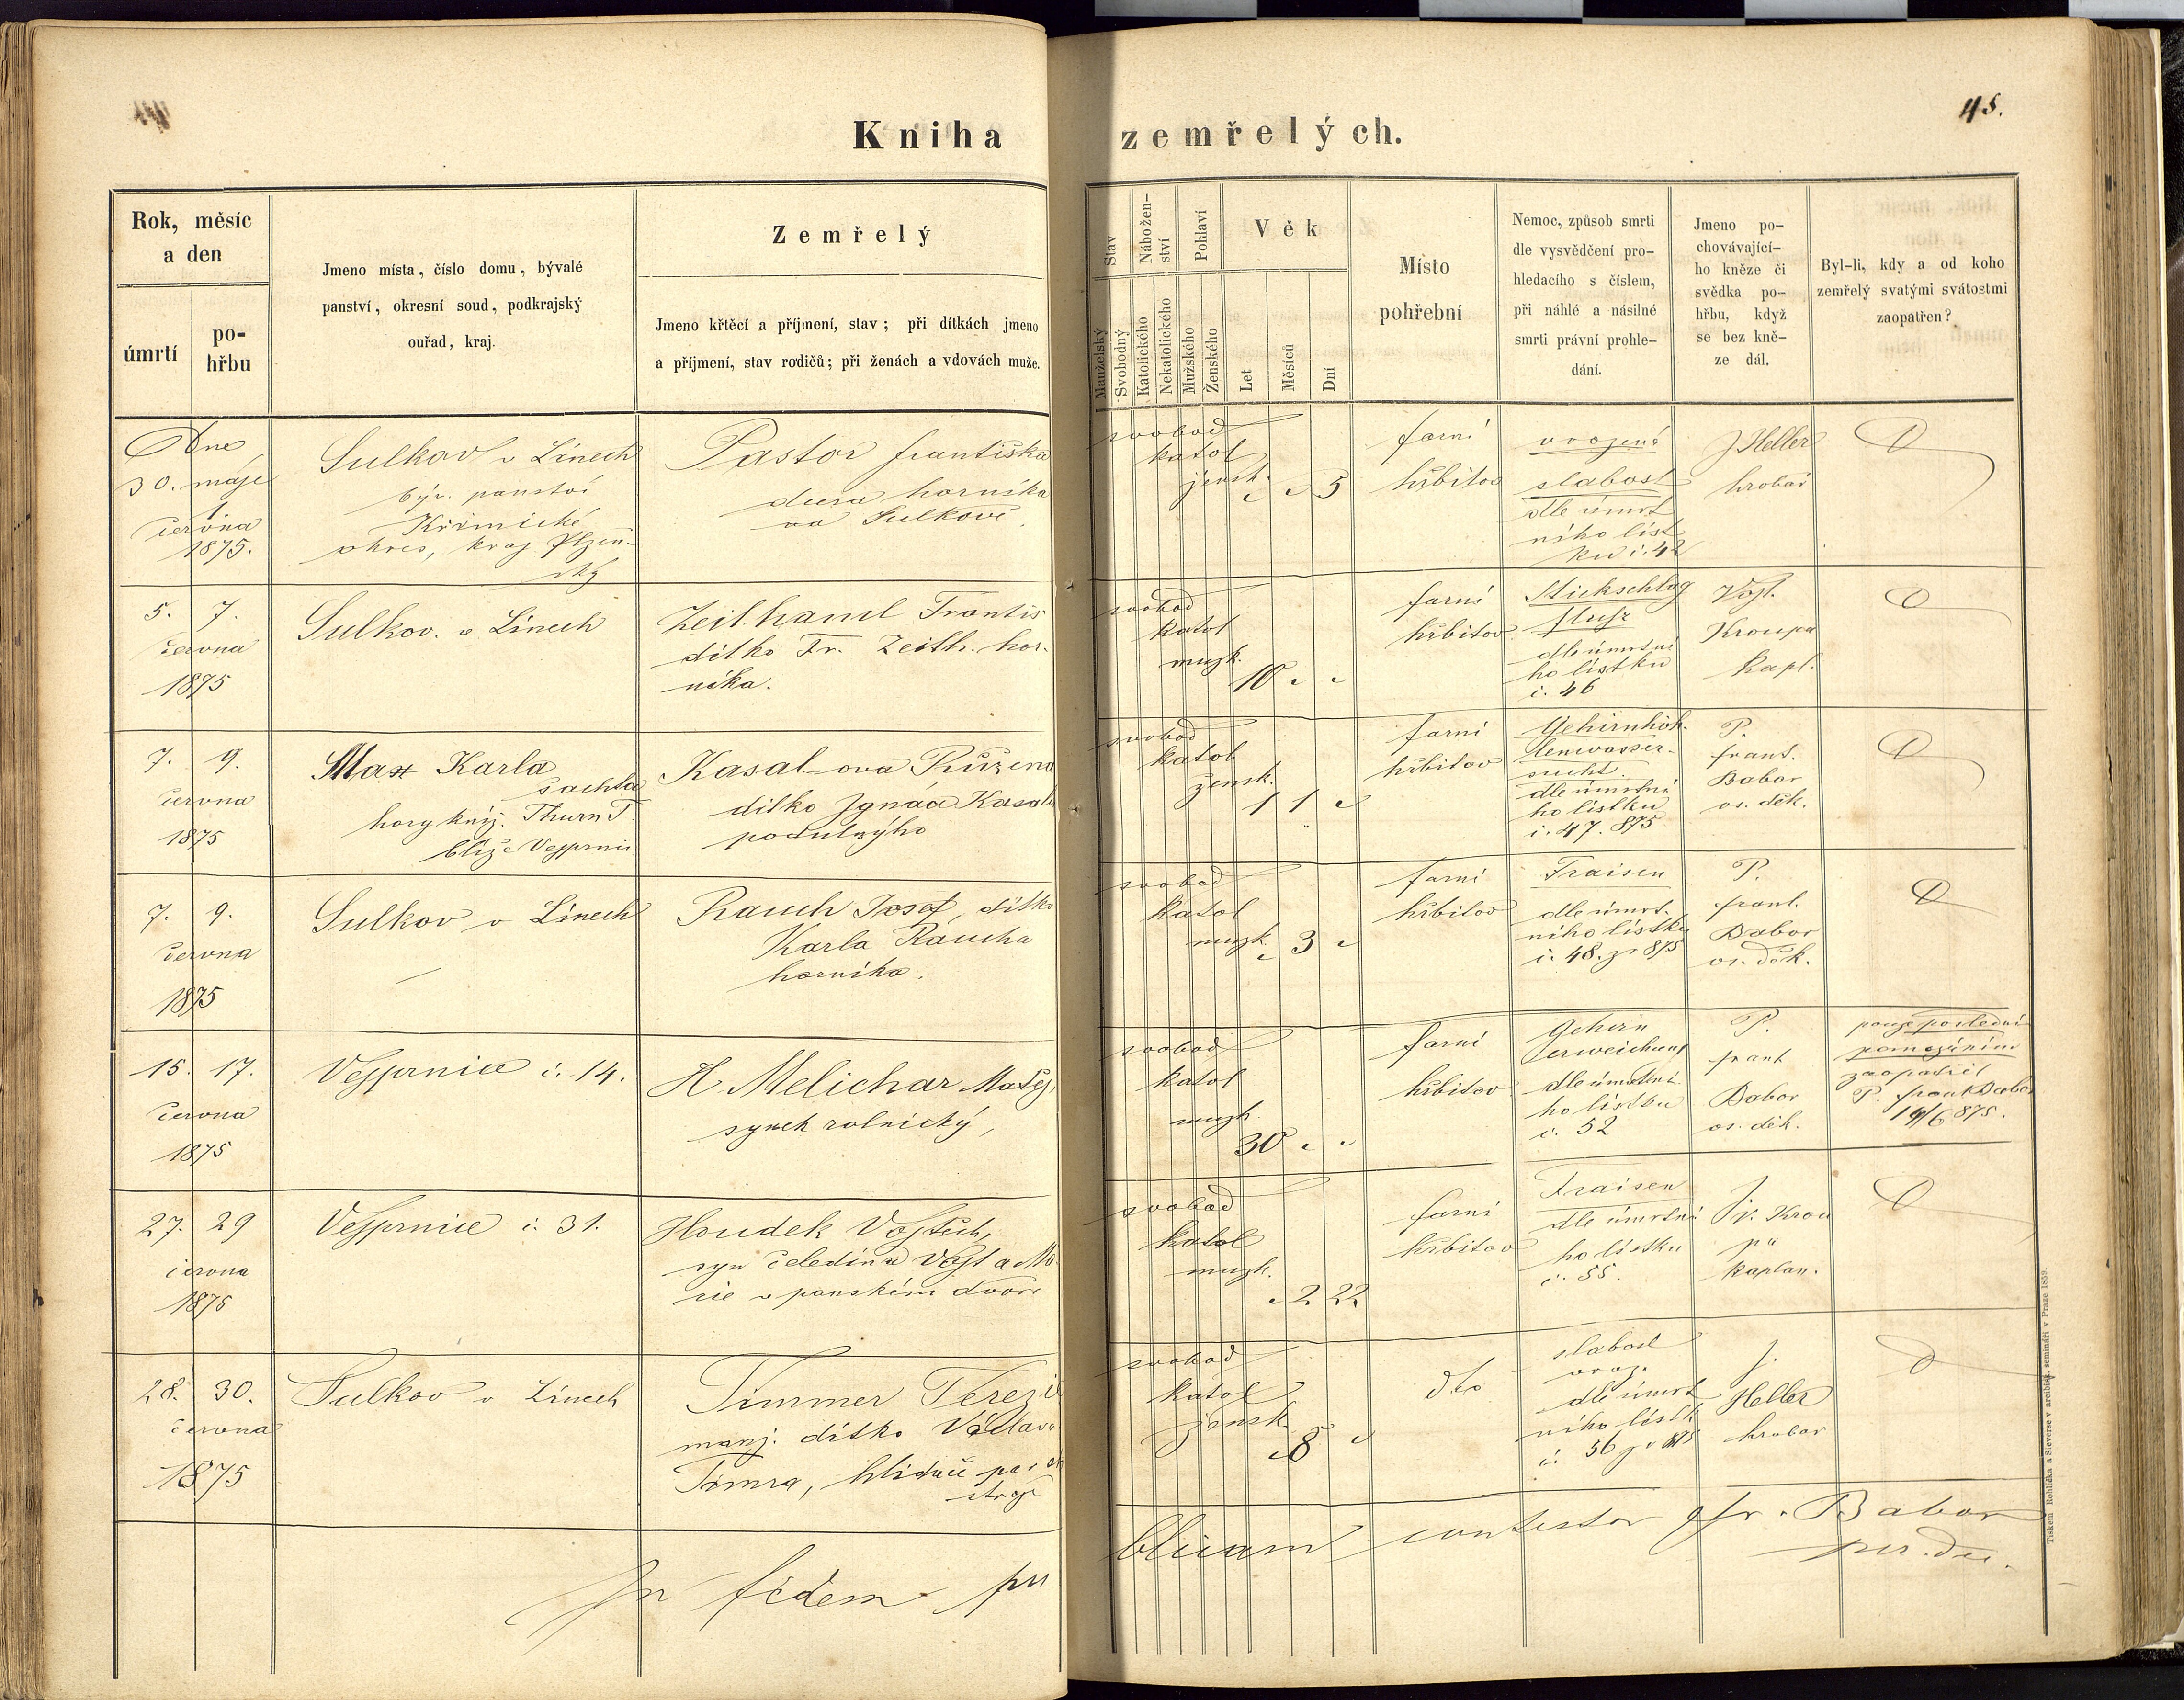 45.
Kniha zemřelých.
Rok, měsíc
a den
úmrtí
po-
hřbu
Jmeno místa, číslo domu, bývalé
panství, okresní soud, podkrajský
ouřad, kraj.
Zemřelý
Jmeno křtěcí a příjmení, stav; při dítkách jmeno
a příjmení, stav rodičů; při ženách a vdovách muže.
Stav
Manželský
Svobodný
Nábožen-
ství
Katolického
Nekatolického
Pohlaví
Mužského
Ženského
Věk
Let
Měsíců
Dní
Místo
pohřební
Nemoc, způsob smrti
dle vysvědčení pro-
hledacího s číslem,
při náhlé a násilné
smrti právní prohle-
dání.
Jmeno po-
chovávající-
ho kněze či
svědka po-
hřbu, když
se bez kně-
ze dál.
Byl-li, kdy a od koho
zemřelý svatými svátostmi
zaopatřen?
Dne
30. máje
1.
června
1875.
Sulkov v Línech
býv. panství
Křimické
okres, kraj Plzeň-
ský
Pastor františka
dcera horníka
na Sulkově
svobod
katol
žensk.
5
farní
hřbitov
vrozená
slabost
dle úmrt
ního líst
ku č. 42
J Heller
hrobař
5. 7.
června
1875
Sulkov. v Línech
Zeithaml Frantis
dítko Fr. Zeith. hor-
níka.
svobod
katol
muzk.
10
farní
hřbitov
Stickschlag
fluss
dle úmrtní
ho lístku
č. 46
Vojt.
Kroupa
kapl.
7. 9.
června
1875
Max Karla
šachta
hory kníž. Thurn T.
blíže Vejprnic
Kasal-ova Růžena
dítko Ignáce Kasala
svobod
katol
žensk.
1 1
farní
hřbitov
Gehirnhöh-
lenwasser-
sucht.
dle úmrtní
ho lístku
č. 47. 875
P.
frant.
Babor
os. děk.
7. 9.
června
1875
Sulkov v Línech
Rauch Josef, dítko
Karla Raucha
horníka.
svobod
katol
muzk.
3
farní
hřbitov
Fraisen
dle úmrt-
ního lístku
č. 48. z r 875
P.
frant.
Babor
os. děk.
15. 17.
června
1875
Vejprnice č. 14.
H Melichar Matěj,
synek rolnický,
svobod
katol
muzk.
30
farní
hřbitov
Gehirn
erweichung
dle úmrtní
ho lístku
č. 52
P.
frant
Babor
os. děk.
pouze poslední
pomazáním
zaopatřil
P. frant Babor
14/6 875.
27. 29
června
1875
Vejprnice č. 31.
Houdek Vojtěch,
syn čeledína Vojt a Ma
rie v panském dvoře
svobod
katol
muzk.
2 22
farní
hřbitov
Fraisen
dle úmrtní
ho lístku
č. 55.
V. Krou
pa
kaplan.
28. 30.
června
1875
Sulkov v Línech
Timmer Terezie
manž. dítko Václava
Timra, hlídače
stroje
svobod
katol
žensk.
8
dto
slabost
vroz.
dle úmrt
ního lístk
č. 56 z r 875
J.
Heller
hrobař
In fidem publicam contestor Fr. Babor
Tiskem Rohlíčka a Sieverse v arcibisk. semináři v Praze 1859.